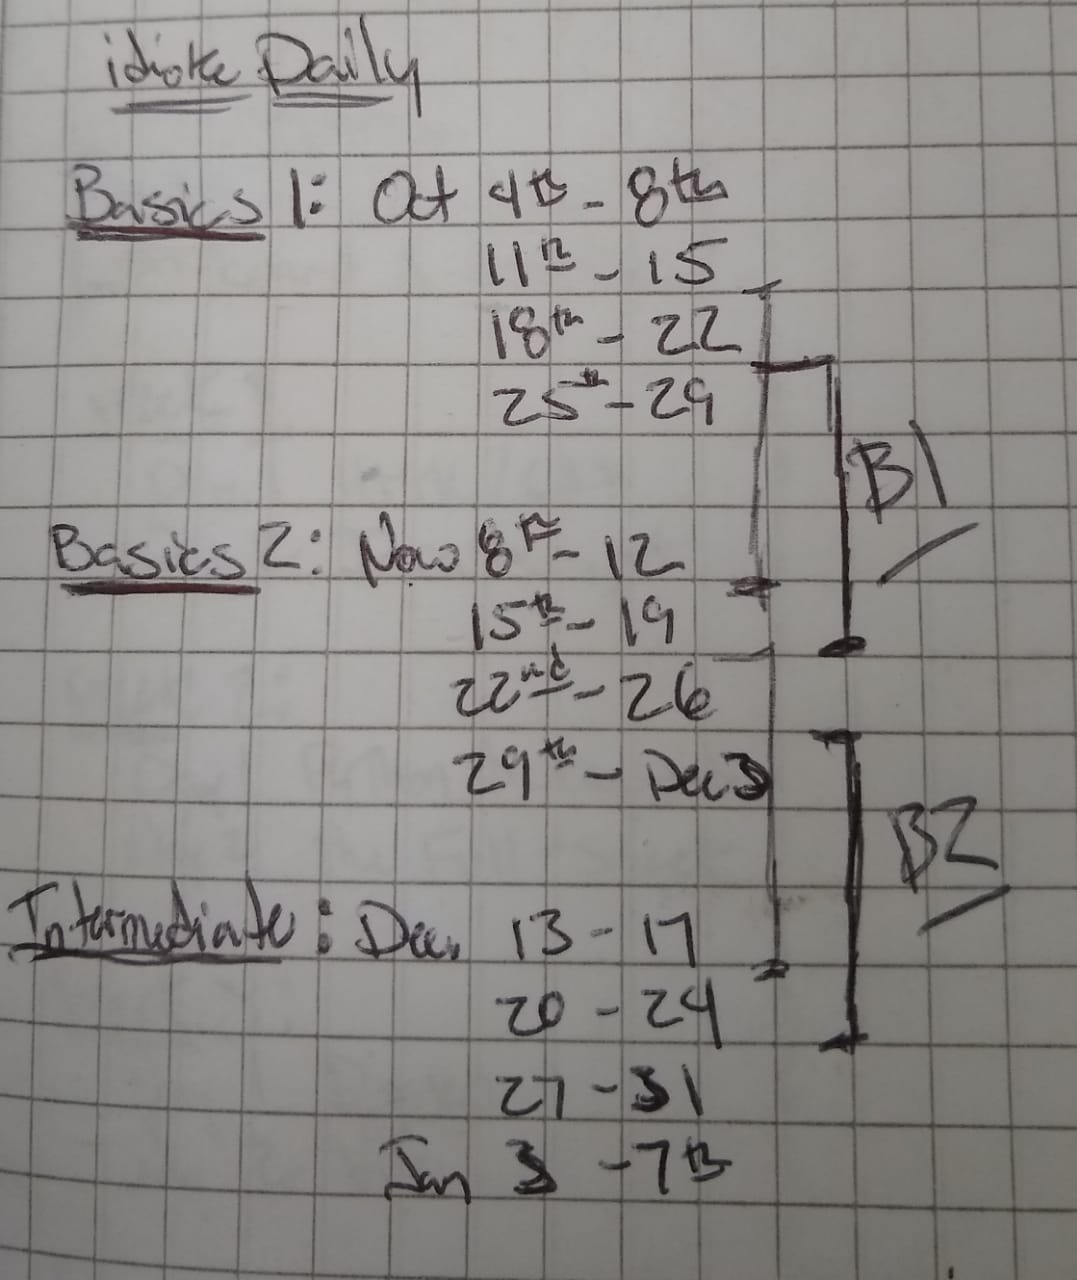 idioke Daily
Basics 1: Oct 4th - 8th
11th - 15
18th - 22
25th - 29
B1
Basics 2: Nov 8th - 12
15th - 19
22nd - 26
29th - Dec 3
B2
Intermediate: Dec. 13 - 17
20 - 24
27 - 31
Jan 3 - 7th